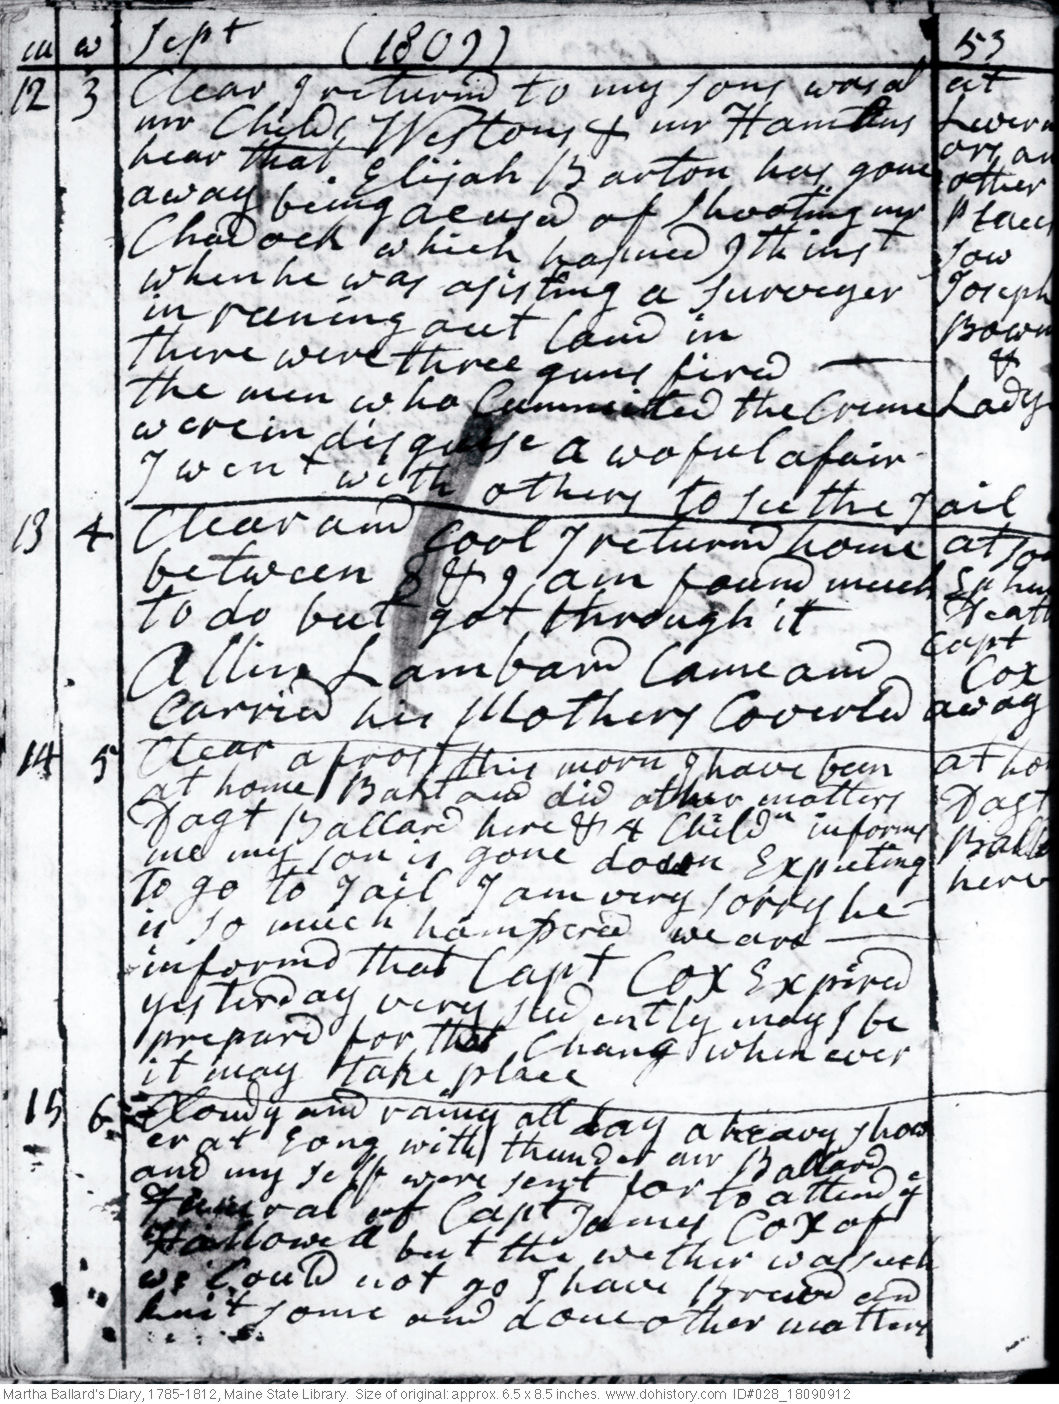 m w Sept (1809) 53
12 3 Clear I returnd to my sons was at
mr Childs Westons & mr Hamlins
hear that Elijah Barton has gone
away being acused of Shooting mr
Chadock which hapned I think
when he was asisting a surveyer
in runing out land in
there were three guns fired
the men who Committed the Crime
were in disguise a woful afair
I went with others to see the Jail
at
Severl
ors
other
places
Saw
Joseph
Bowm
&
Lady
13 4 Clear and cool I returnd home
between 8 & 9 am found much
to do but got through it
Allin Lambard Came and
Carried his Mothers Coverled away
at
Capt
Cox
14 5 Clear a frost this morn I have been
at home Bakt and did other matters
Dagt Ballard here & 4 Childn informs
me my son is gone down Expecting
to go to Jail I am very sorry he
is so much hampered we are
informd that Capt Cox Expired
yesterday very sudently may I be
prepard for that Chang when ever
it may take place
at ho
Dagt
Balla
here
15 6 Cloudy and rainy all day a heavy show
er at Eong with thunder mr Ballard
and my self were sent for to attend ye
Funeral of Capt James Cox of
Hallowell but the wether was such
we Could not go I have Brewd and
knit some and done other matters
Martha Ballard's Diary, 1785-1812, Maine State Library. Size of original: approx. 6.5 x 8.5 inches. www.dohistory.com ID#028_18090912